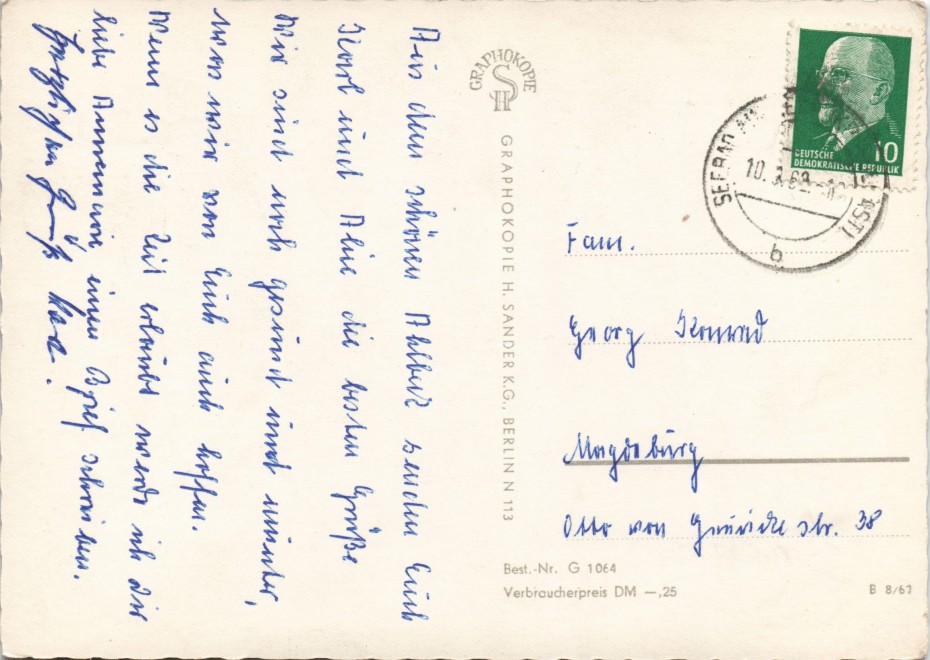 Aus dem schönen Ahlbeck senden Euch
Karl und Aline die besten Grüße
Wir sind noch gesund und munter,
was wir von Euch auch hoffen.
Wenn es die Zeit erlaubt werde ich Dir
liebe Annemarie einen Brief schreiben.
Herzlichen Gruß
GRAPHOKOPIE
H S
GRAPHOKOPIE H. SANDER K.G., BERLIN N 113
DEUTSCHE
DEMOKRATISCHE REPUBLIK
10
SEEBAD
b
Fam.
Georg Konrad
Magdeburg
Otto von Guericke str. 38
Best.-Nr. G 1064
Verbraucherpreis DM —,25
B 8/67